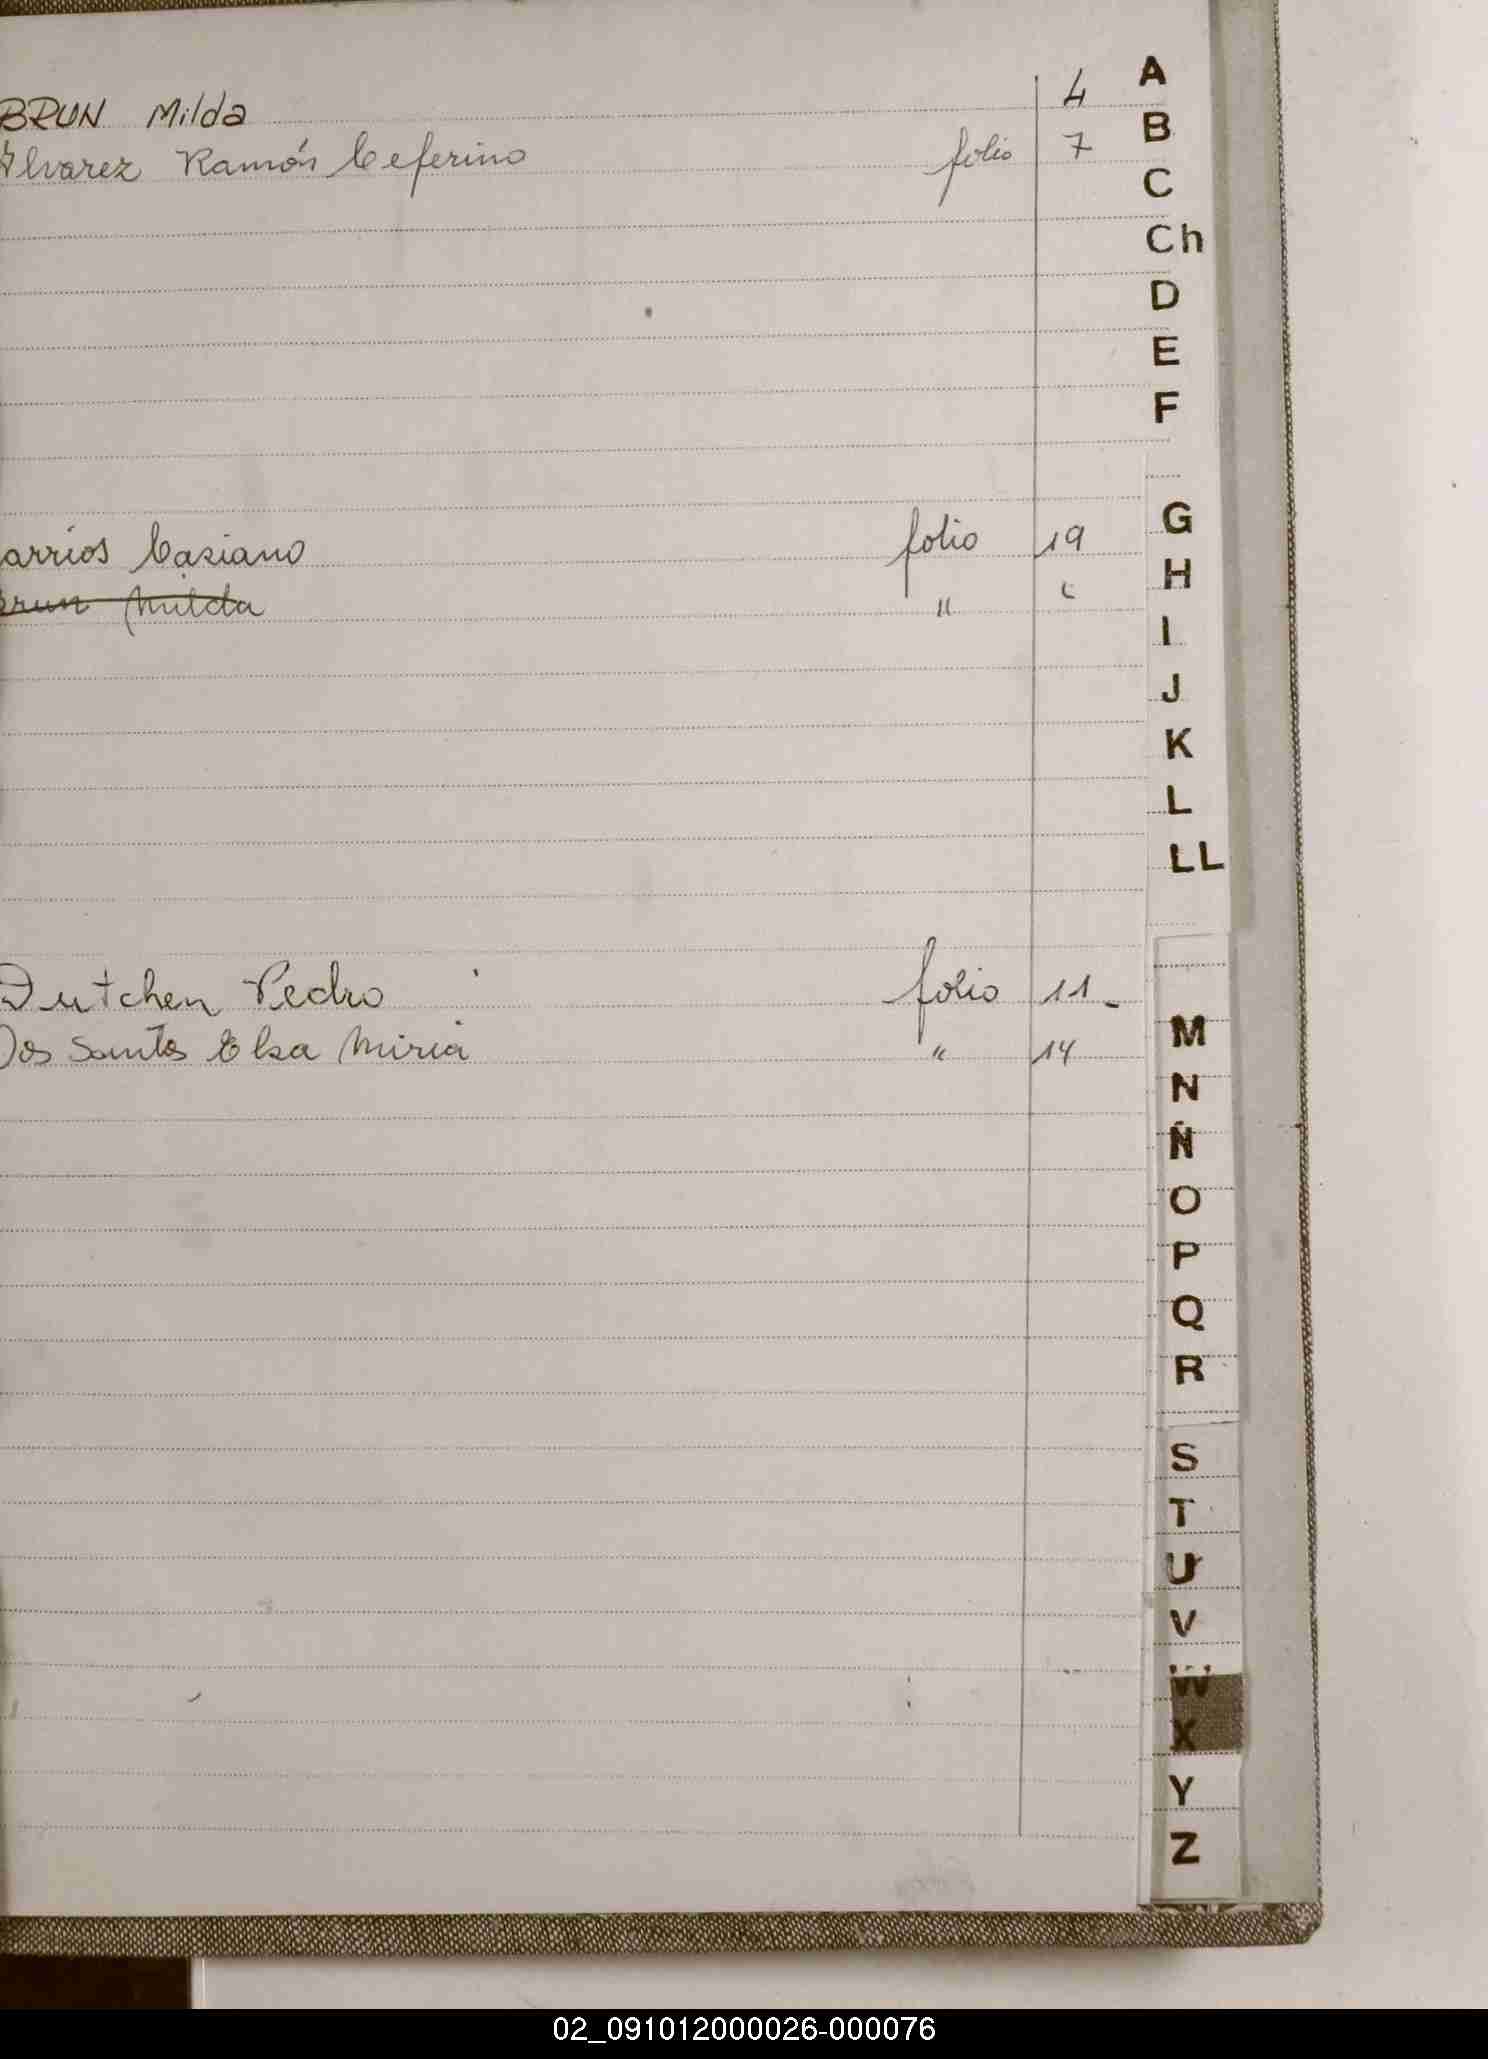 BRUN Milda 4
Alvarez Ramón Ceferino folio 7
arrios Casiano folio 19
Brun Milda "
Dutchen Pedro folio 11-
Dos Santos Elsa Miria " 14
A
B
C
Ch
D
E
F
G
H
I
J
K
L
LL
M
N
Ñ
O
P
Q
R
S
T
U
V
W
X
Y
Z
02_091012000026-000076